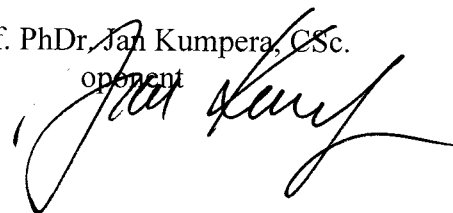 f. PhDr. Jan Kumpera, CSc.
oponent
Jan Kump